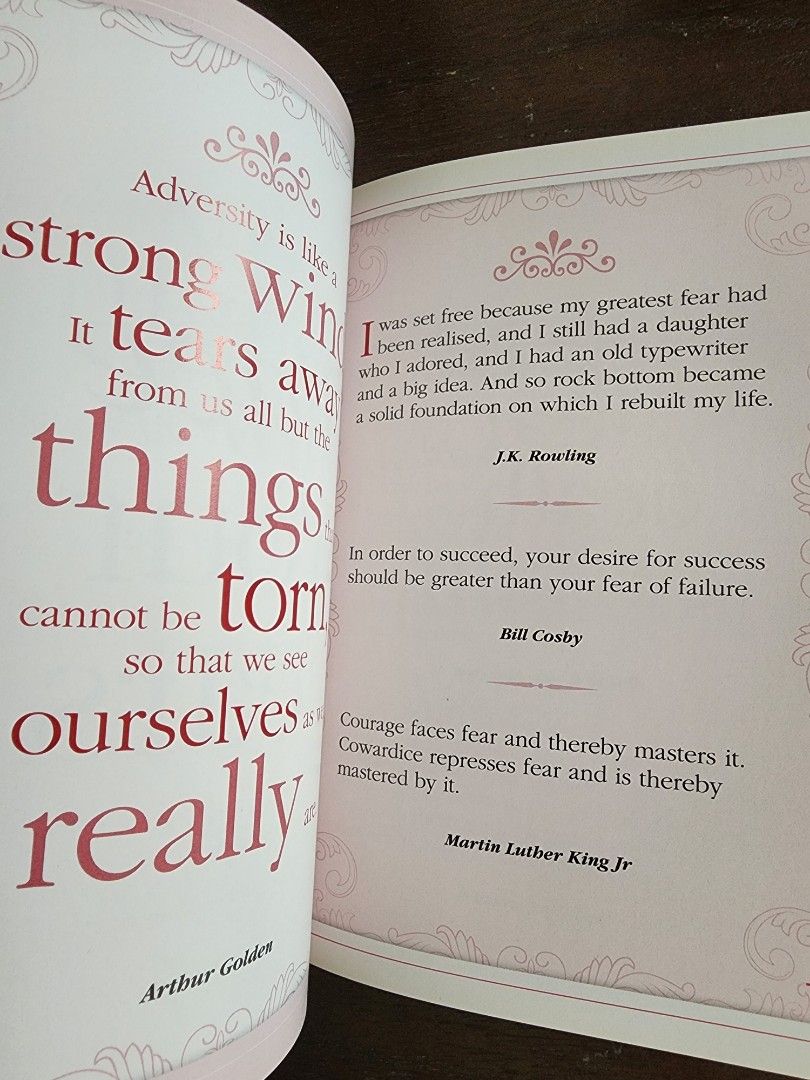 Adversity is like a
strong Wind
It tears away
from us all but the
things
cannot be torn
so that we see
ourselves as
really are
Arthur Golden
I was set free because my greatest fear had
been realised, and I still had a daughter
who I adored, and I had an old typewriter
and a big idea. And so rock bottom became
a solid foundation on which I rebuilt my life.
J.K. Rowling
In order to succeed, your desire for success
should be greater than your fear of failure.
Bill Cosby
Courage faces fear and thereby masters it.
Cowardice represses fear and is thereby
mastered by it.
Martin Luther King Jr